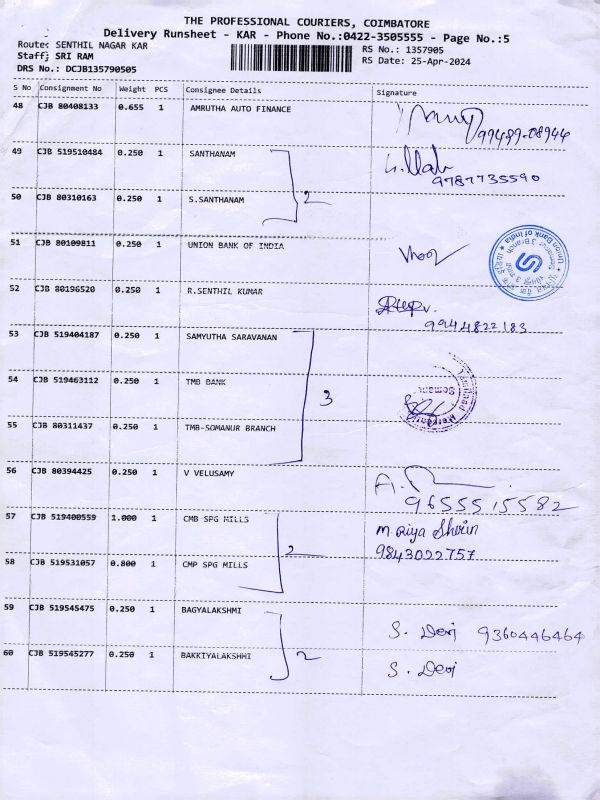 THE PROFESSIONAL COURIERS, COIMBATORE
Delivery Runsheet - KAR - Phone No.:0422-3505555 - Page No.:5
Route: SENTHIL NAGAR KAR
RS No.: 1357905
Staff: SRI RAM
RS Date: 25-Apr-2024
DRS No.: DCJB135790505
S No Consignment No Weight PCS Consignee Details Signature
48 CJB 80408133 0.655 1 AMRUTHA AUTO FINANCE
99489-08944
49 CJB 519510484 0.250 1 SANTHANAM
9787735590
50 CJB 80310163 0.250 1 S.SANTHANAM
2
51 CJB 80109811 0.250 1 UNION BANK OF INDIA
Union Bank of India
52 CJB 80196520 0.250 1 R.SENTHIL KUMAR
9944822183
53 CJB 519404187 0.250 1 SAMYUTHA SARAVANAN
54 CJB 519463112 0.250 1 TMB BANK
3
55 CJB 80311437 0.250 1 TMB-SOMANUR BRANCH
56 CJB 80394425 0.250 1 V VELUSAMY
9655515582
57 CJB 519400559 1.000 1 CMB SPG MILLS
M Riya Sherin
2
9843022757
58 CJB 519531057 0.800 1 CMP SPG MILLS
59 CJB 519545475 0.250 1 BAGYALAKSHMI
S. Devi 9360446464
60 CJB 519545277 0.250 1 BAKKIYALAKSHMI
2
S. Devi